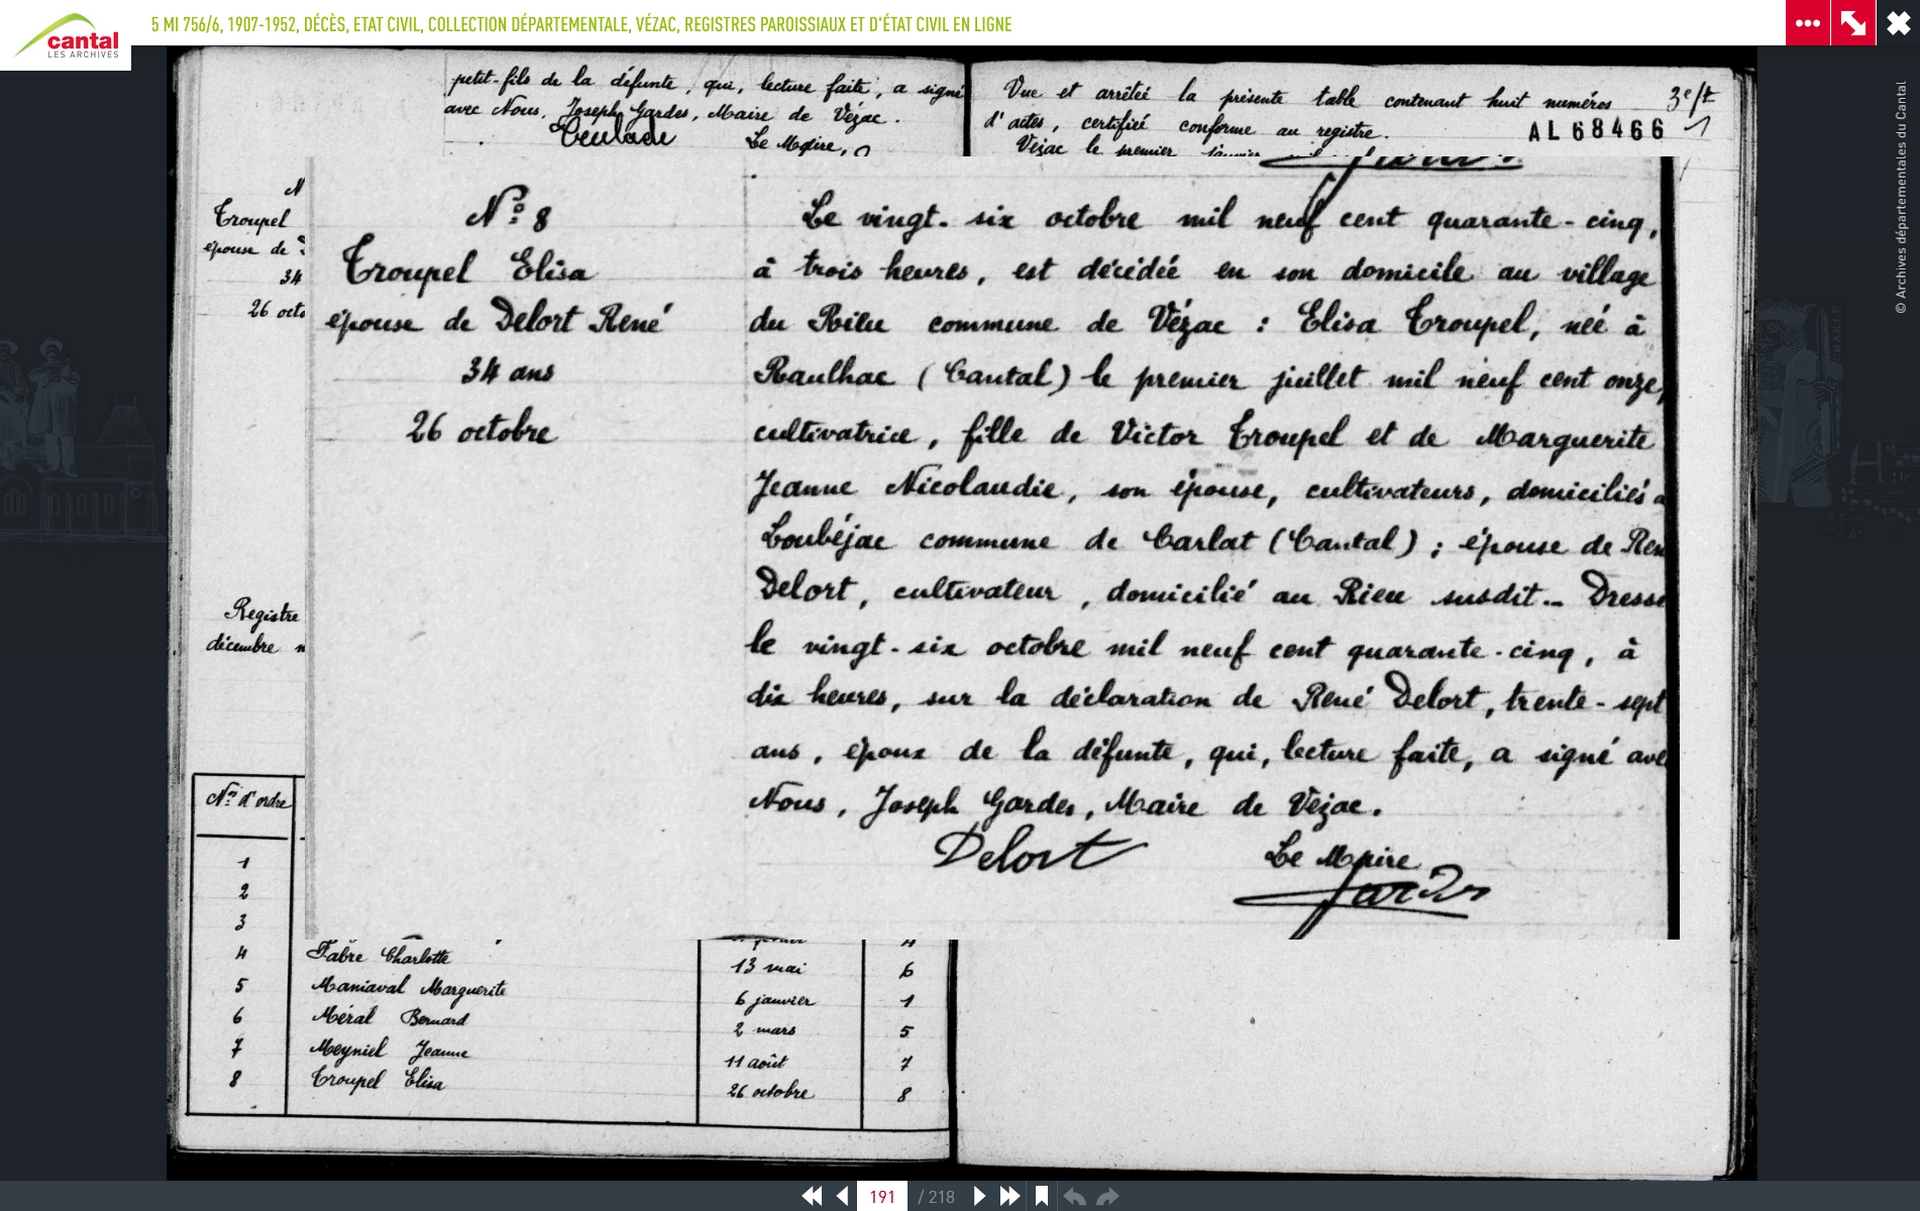 cantal
LES ARCHIVES
5 MI 756/6, 1907-1952, DÉCÈS, ETAT CIVIL, COLLECTION DÉPARTEMENTALE, VÉZAC, REGISTRES PAROISSIAUX ET D'ÉTAT CIVIL EN LIGNE
© Archives départementales du Cantal
petit-fils de la défunte, qui, lecture faite, a signé
avec Nous, Joseph Gardes, Maire de Vézac.
Le Maire,
Vue et arrêtée la présente table contenant huit numéros
d'actes, certifiée conforme au registre.
Vézac le premier janvier
AL 68466
N
Troupel
épouse de
34
26 octo
Registre
décembre
N° 8
Troupel Elisa
épouse de Delort René
34 ans
26 octobre
Le vingt-six octobre mil neuf cent quarante-cinq,
à trois heures, est décédée en son domicile au village
du Rieu commune de Vézac : Elisa Troupel, née à
Raulhac (Cantal) le premier juillet mil neuf cent onze,
cultivatrice, fille de Victor Troupel et de Marguerite
Jeanne Nicolaudie, son épouse, cultivateurs, domiciliés à
Loubéjac commune de Carlat (Cantal) ; épouse de Ren
Delort, cultivateur, domicilié au Rieu susdit._ Dressé
le vingt-six octobre mil neuf cent quarante-cinq, à
dix heures, sur la déclaration de René Delort, trente-sept
ans, époux de la défunte, qui, lecture faite, a signé ave
Nous, Joseph Gardes, Maire de Vézac.
Delort
Le Maire
Gardes
N° d'ordre
1
2
3
4 Fabre Charlotte 13 mai 6
5 Maniaval Marguerite 6 janvier 1
6 Méral Bernard 2 mars 5
7 Meyniel Jeanne 11 août 7
8 Troupel Elisa 26 octobre 8
191 / 218